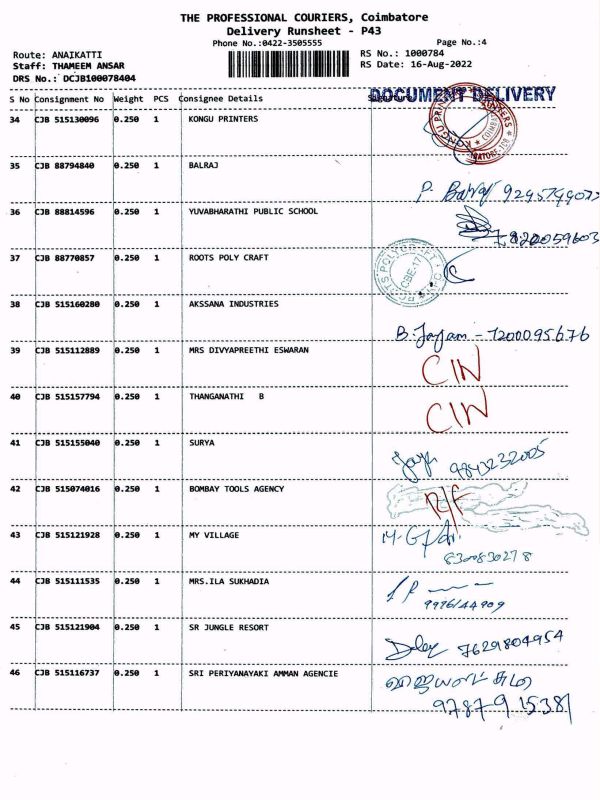 THE PROFESSIONAL COURIERS, Coimbatore
Delivery Runsheet - P43
Phone No.:0422-3505555 Page No.:4
Route: ANAIKATTI RS No.: 1000784
Staff: THAMEEM ANSAR RS Date: 16-Aug-2022
DRS No.: DCJB100078404
S No Consignment No Weight PCS Consignee Details DOCUMENT DELIVERY
34 CJB 515130096 0.250 1 KONGU PRINTERS
35 CJB 88794840 0.250 1 BALRAJ
P. Balraj
36 CJB 88814596 0.250 1 YUVABHARATHI PUBLIC SCHOOL
7820059603
37 CJB 88770857 0.250 1 ROOTS POLY CRAFT CBE-17
38 CJB 515160280 0.250 1 AKSSANA INDUSTRIES
B. Jayam - 7200095676
39 CJB 515112889 0.250 1 MRS DIVYAPREETHI ESWARAN
CIN
40 CJB 515157794 0.250 1 THANGANATHI B
CIN
41 CJB 515155040 0.250 1 SURYA
9843232005
42 CJB 515074016 0.250 1 BOMBAY TOOLS AGENCY
R/F
43 CJB 515121928 0.250 1 MY VILLAGE
830083027 8
44 CJB 515111535 0.250 1 MRS.ILA SUKHADIA
9976144909
45 CJB 515121904 0.250 1 SR JUNGLE RESORT
7629804954
46 CJB 515116737 0.250 1 SRI PERIYANAYAKI AMMAN AGENCIE
9787915381